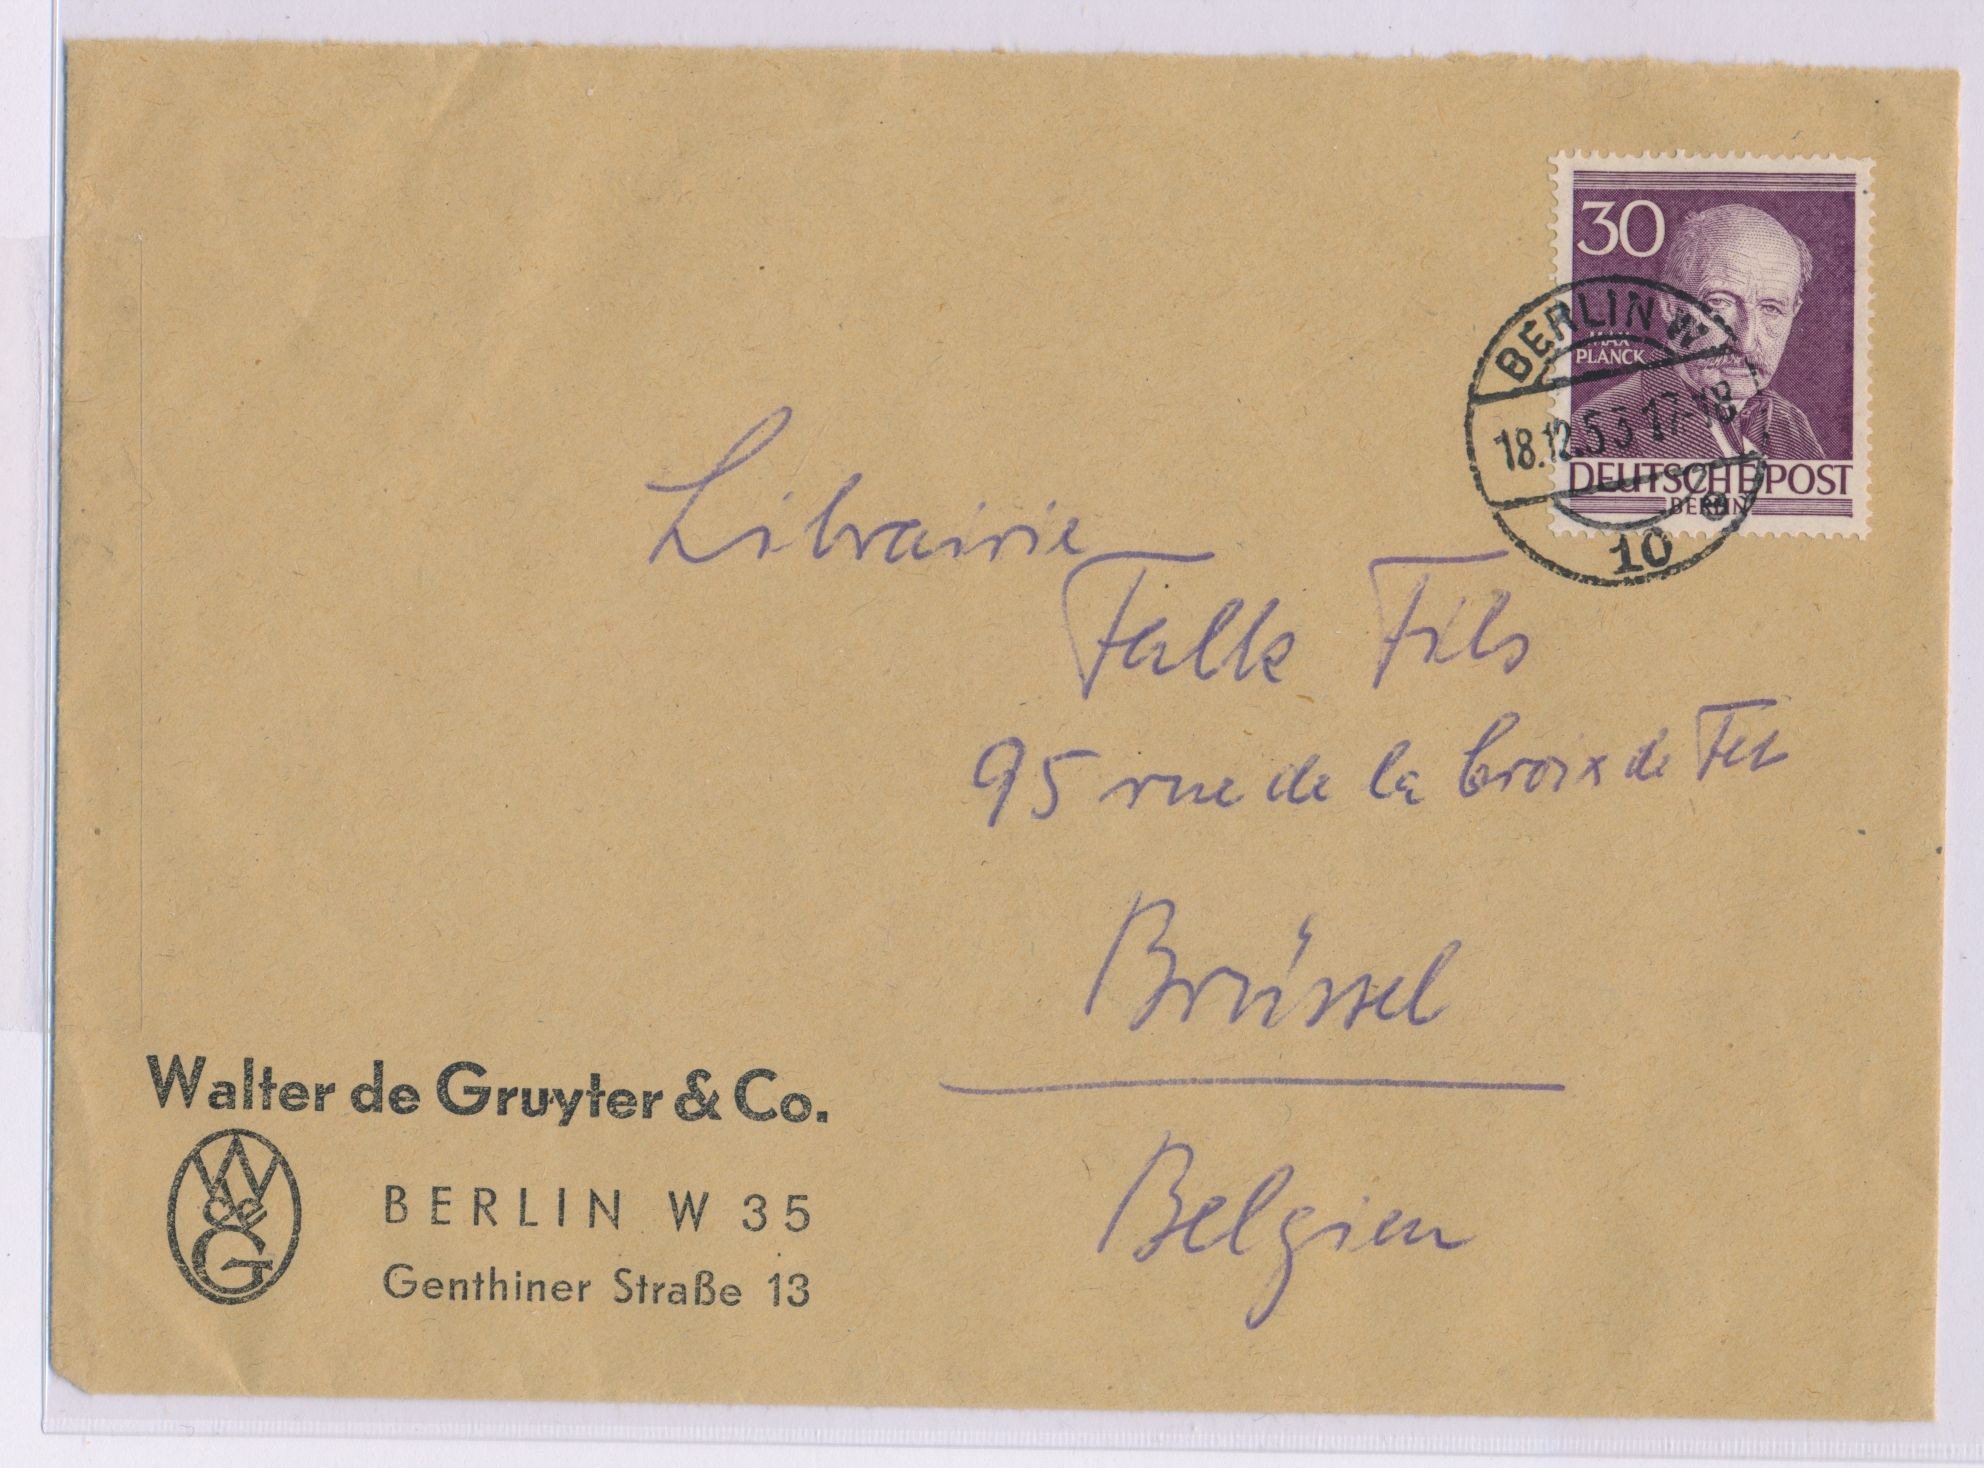 30
MAX
PLANCK
DEUTSCHE POST
BERLIN
BERLIN W
18.12.53 17-18
10
Librairie
Falk Fils
95 rue de la Croix de Fer
Brüssel
Belgien
Walter de Gruyter & Co.
W
de
G
BERLIN W 35
Genthiner Straße 13